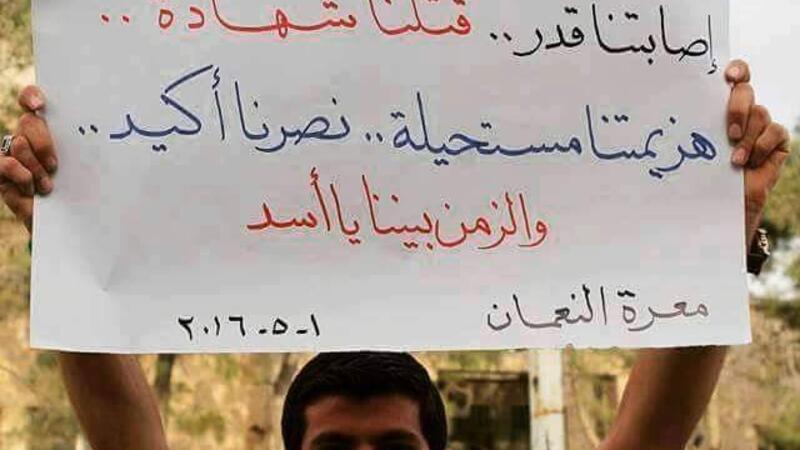 إصابتنا قدر.. قتلنا شهادة..
هزيمتنا مستحيلة.. نصرنا أكيد..
والزمن بيننا يا أسد
معرة النعمان
١-٥-٢٠١٦